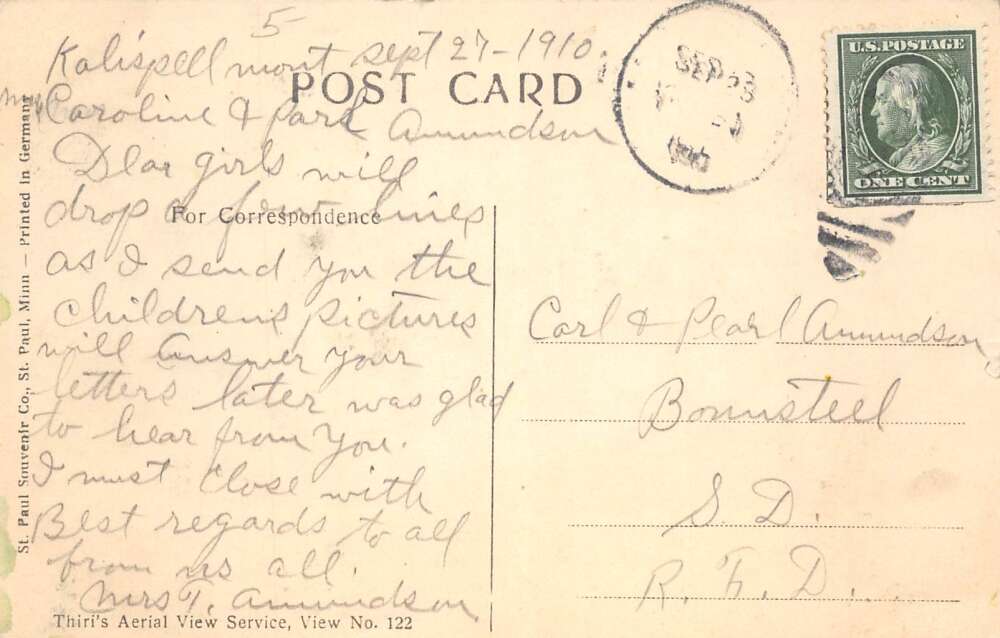 5
Kalispell mont sept 27-1910.
POST CARD
Caroline & Parl Amundson
Dear girls will
drop a few lines
For Correspondence
as I send you the
childrens pictures
will answer your
letters later was glad
to hear from you.
I must close with
Best regards to all
from us all.
Mrs T. Amundson
Thiri's Aerial View Service, View No. 122
St. Paul Souvenir Co., St. Paul, Minn — Printed in Germany
SEP
U.S. POSTAGE
ONE CENT
Carl & Pearl Amundson,
Bonnsteel
S. D.
R. F. D...